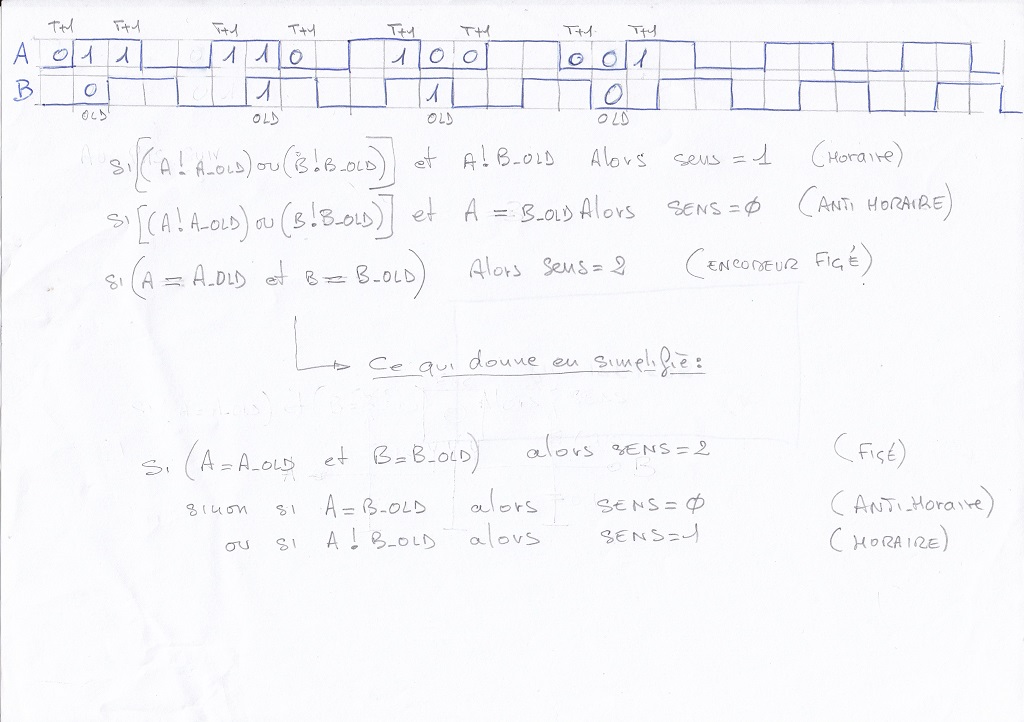 T+1 T+1 T+1 T+1 T+1 T+1 T+1 T+1
A 0 1 1 1 1 0 1 0 0 0 0 1
B 0 1 1 0
OLD OLD OLD OLD
Si [(A ! A_OLD) ou (B ! B_OLD)] et A ! B_OLD Alors sens = 1 (Horaire)
Si [(A ! A_OLD) ou (B ! B_OLD)] et A = B_OLD Alors SENS = Ø (ANTI HORAIRE)
Si (A = A_OLD et B = B_OLD) Alors Sens = 2 (ENCODEUR FIGÉ)
Ce qui donne en simplifié :
Si (A = A_OLD et B = B_OLD) alors SENS = 2 (FIGÉ)
sinon si A = B_OLD alors SENS = Ø (ANTI_Horaire)
ou si A ! B_OLD alors SENS = 1 (HORAIRE)